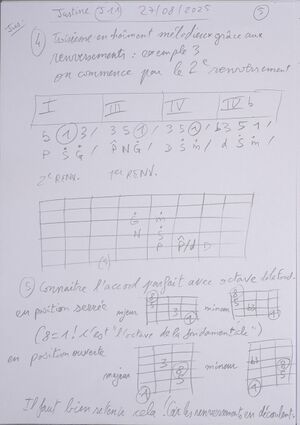 Justine (J11) 27/08/2025 (5)
(4) enchaînement mélodieux grâce aux
renversements : exemple 3
on commence par le 2e renversement
I III IV IV b
5 (1) 3 / 3 5 (1) / 3 5 (1) / b3 5 1 /
P S G / P N G / D S m / d S m /
2e RENV. 1er RENV.
G m
N S
P P/d D
(5) Connaître l'accord parfait avec octave
en position serrée majeur 8 5 3 (1) mineur 8 5 b3 (1)
(8=1 ! c'est "l'octave de la fondamentale")
en position ouverte
majeur 3 8 5 (1) mineur b3 8 5 (1)
Il faut bien retenir cela ! Car les renversements en découlent.